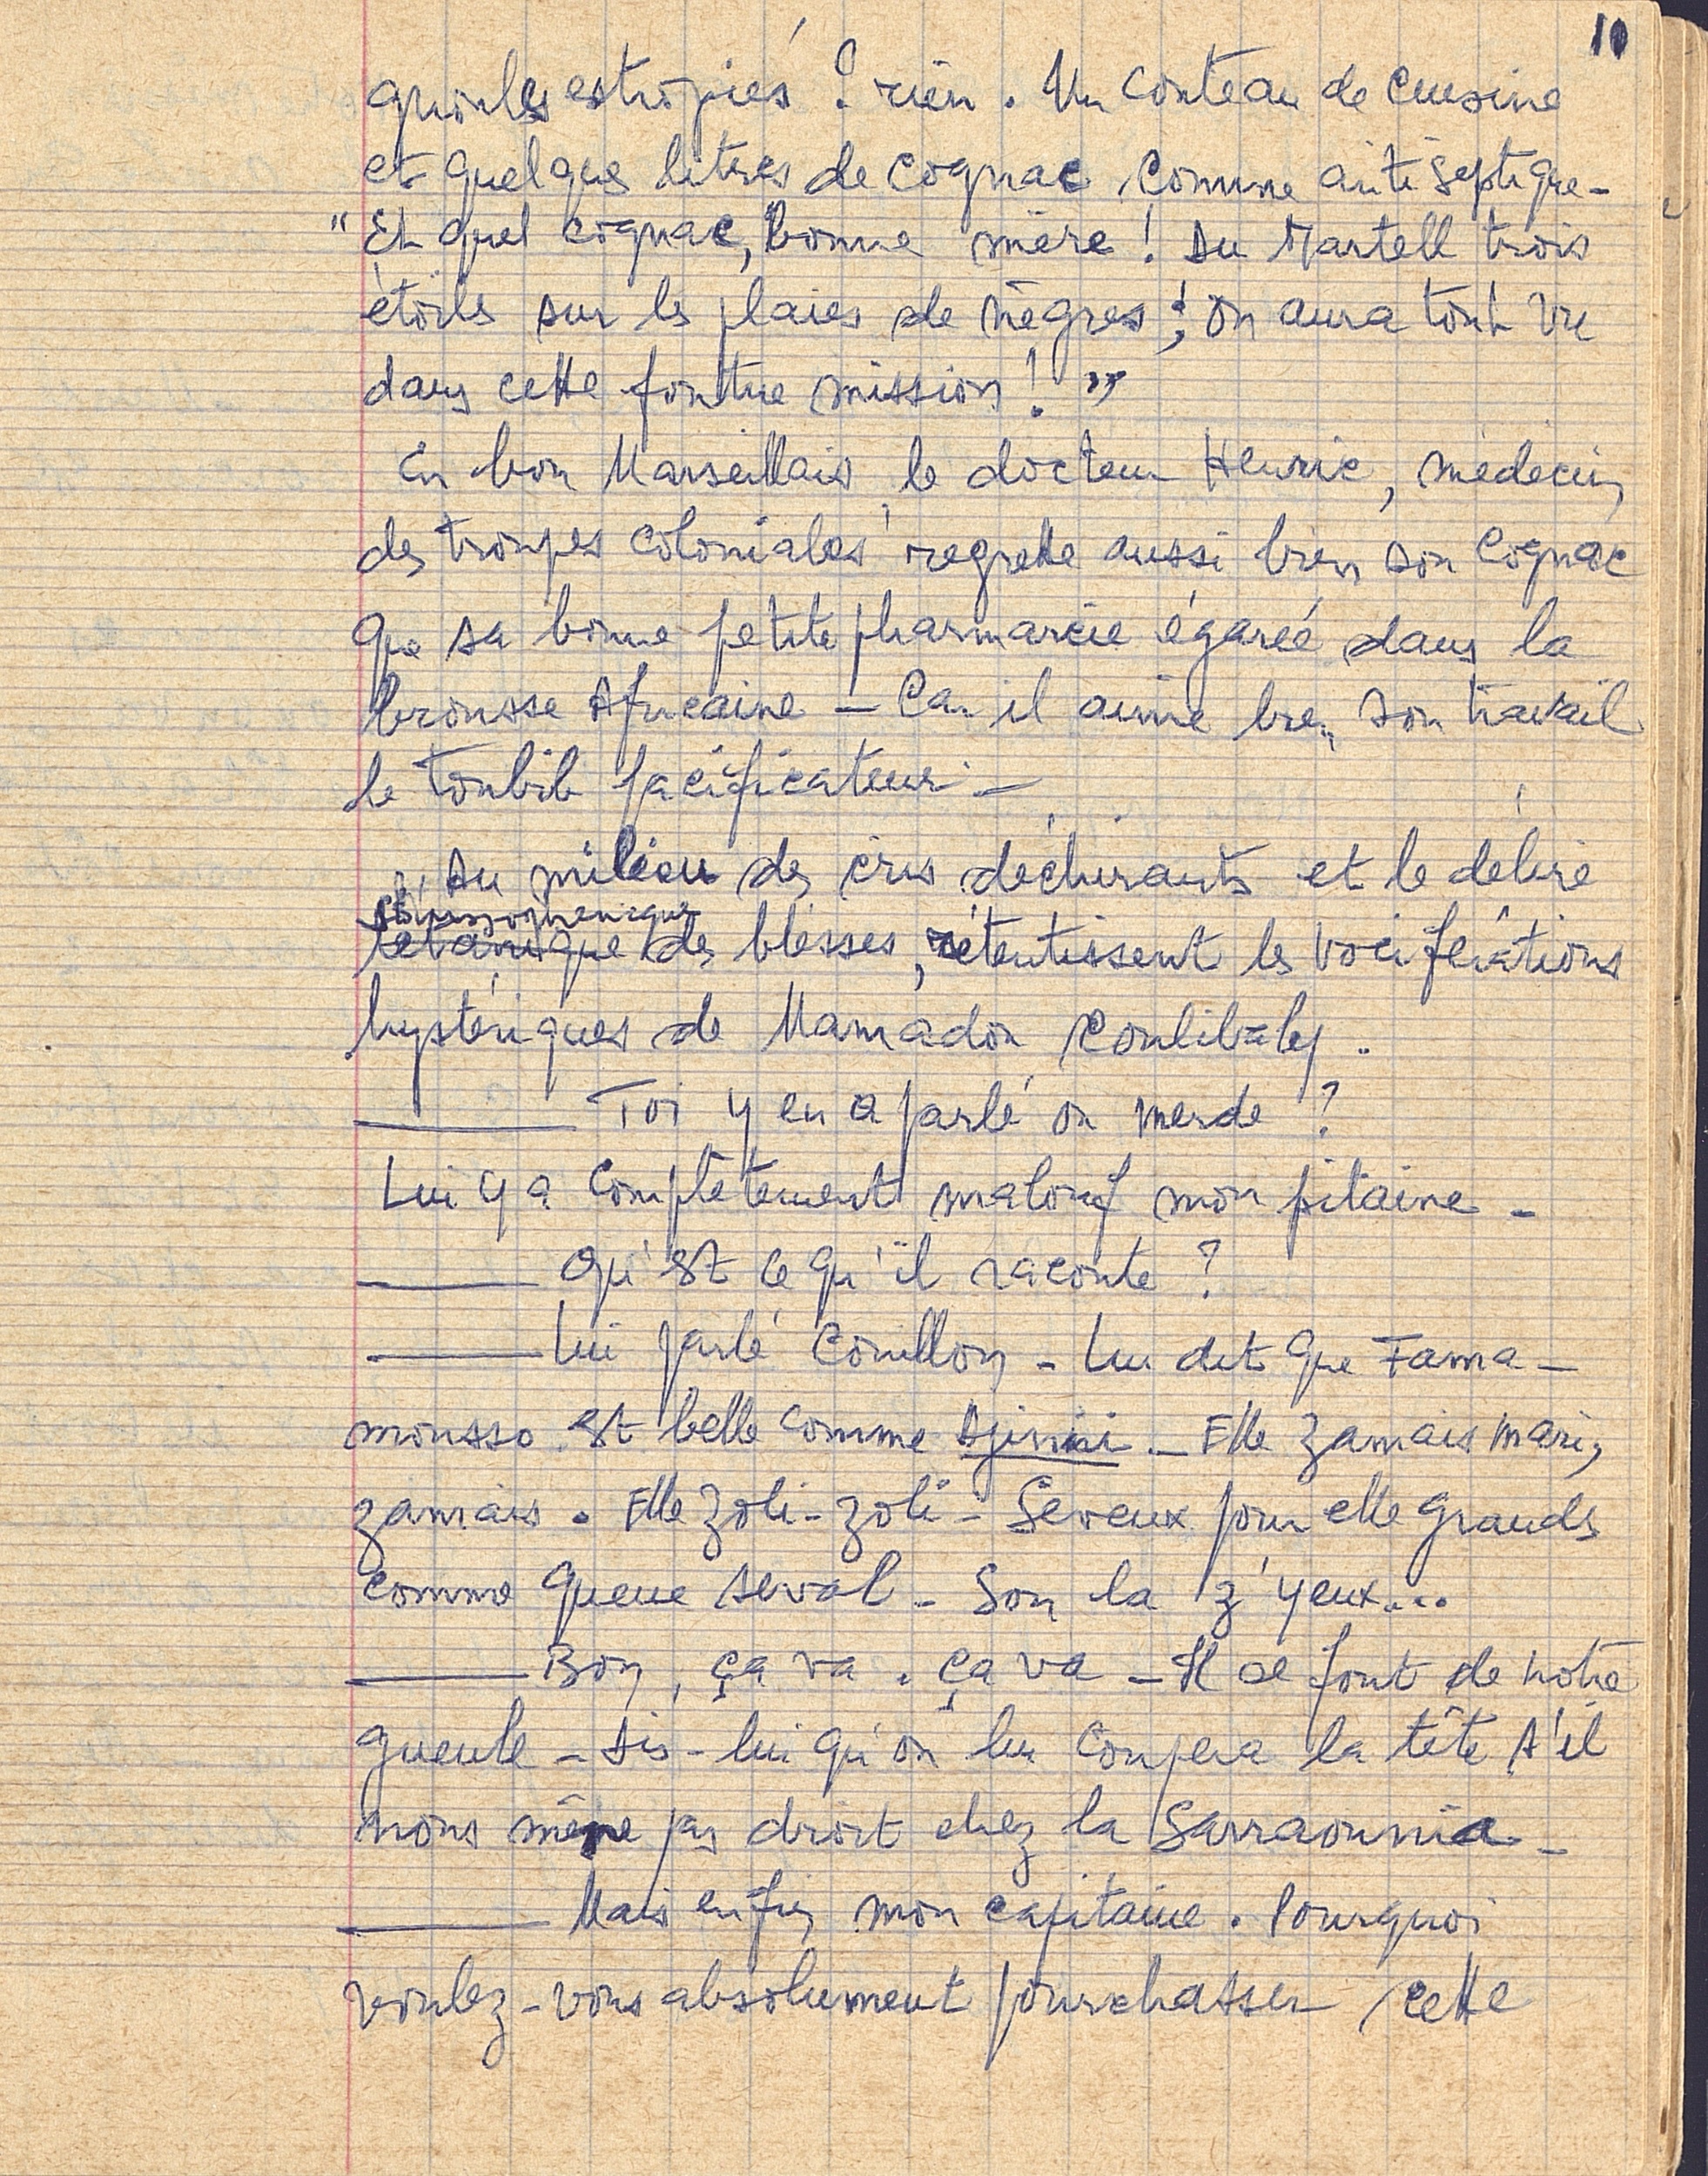 10
estropiés ? rien. Un couteau de cuisine
et quelques litres de cognac comme antiseptique -
"Et quel cognac, bonne mère ! Du Martell trois
étoiles sur les plaies de nègres ; on aura tout vu
dans cette foutue mission ! "
En bon Marseillais, le docteur Henric, médecin
des troupes coloniales regrette aussi bien son cognac
que sa bonne petite pharmacie égarée dans la
brousse Africaine - Car il aime bien son travail
le toubib pacificateur -
Au milieu des cris déchirants et le délire
des blessés, retentissent les vociférations
hystériques de Mamadou Coulibaly.
—— Toi y en a parlé ou merde ?
Lui y a complètement malouf mon pitaine -
—— Qu'est ce qu'il raconte ?
—— Lui parlé couillon - Lui dit que Fama-
mousso est belle comme Djinni - Elle zamais mari,
zamais. Elle zoli-zoli - Seveux pour elle grands
comme queue seval - Son la z'yeux...
—— Bon, ça va. ça va - Il se fout de notre
gueule - Dis-lui qu'on lui coupera la tête s'il
nous mène pas droit chez la Sarraounia -
—— Mais enfin mon capitaine. Pourquoi
voulez-vous absolument pourchasser cette